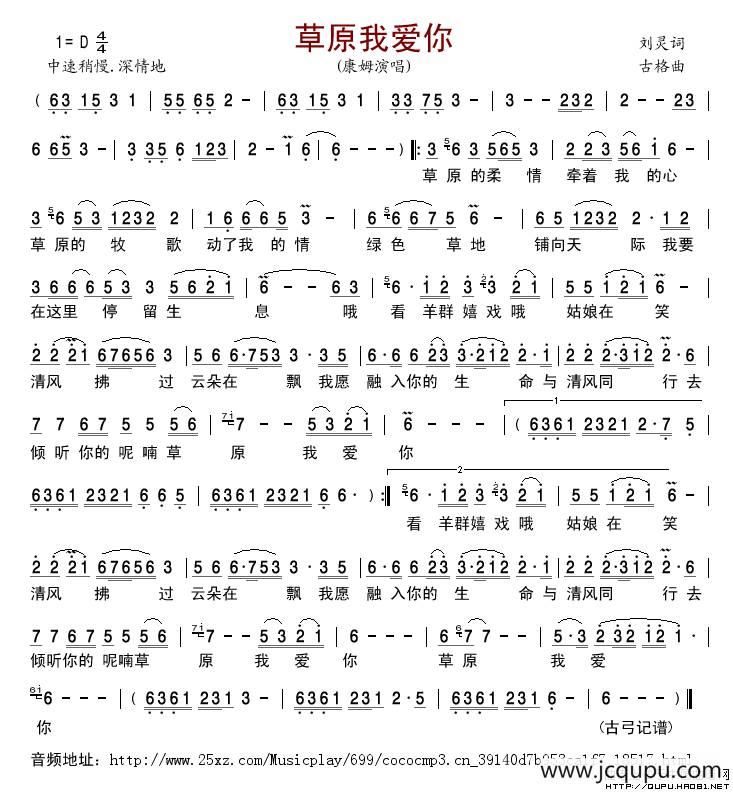 草原我爱你
1= D 4/4
中速稍慢.深情地
(康姆演唱)
刘灵词
古格曲
( 63 15 3 1 | 55 65 2 - | 63 15 3 1 | 33 75 3 - | 3 - - 232 | 2 - - 23
6 65 3 - | 3 35 6 123 | 2 - 1 6 | 6 - - - ) ‖: 3 6 3 565 3 | 2 2 3 56 1 6 - |
草原的柔 情 牵着 我 的心
3 6 53 1232 2 | 1 6 6 65 3 - | 6 6 67 5 6 | 56 1232 2· 16 |
草原的 牧 歌 动了我 的情 绿色 草地 铺向天 际我要
3 6 6 6 53 | 5621 | 6 - - - | 6· 12 3 23 | 5 5 121 6 - |
在这里 停留生 息 哦 看 羊群嬉戏哦 姑娘在 笑
2 2 21 67656 | 56 6·753 3·35 | 6 6 23 3·212 2·1 | 2 2 2·312 2·6 |
清风 拂 过 云朵在 飘 我愿 融入你的 生 命与 清风同 行去
7 7 67 5 5 56 | 7 - 53 21 | 6 - - - | ( 6361 2321 2·7 5 |
倾听你的呢喃草 原 我 爱 你
1
6361 2321 6 6 5 | 6361 2321 6 6· ) :‖ 6· 12 3 23 | 5 5 121 6 - |
2
看 羊群嬉戏哦 姑娘在 笑
2 2 21 67656 | 56 6·753 3·35 | 6 6 23 3·212 2·1 | 2 2 2·312 2·6 |
清风 拂 过 云朵在 飘 我愿 融入你的 生 命与 清风同 行去
7 7 67 55 56 | 7 - 53 21 | 6 7 7 - - | 5·3 232 121 |
倾听你的 呢喃草 原 我 爱 你 草 原 我 爱
- - - | ( 6361 231 3 | 6361 231 2·5 | 6361 231 6 | 6 - - - ) ‖
你
(古弓记谱)
音频地址: http://www.25xz.com/Musicplay/699/cococmp3.cn_39140d7b
www.jcqupu.com
HTTP://QUPU.HAO81.NET